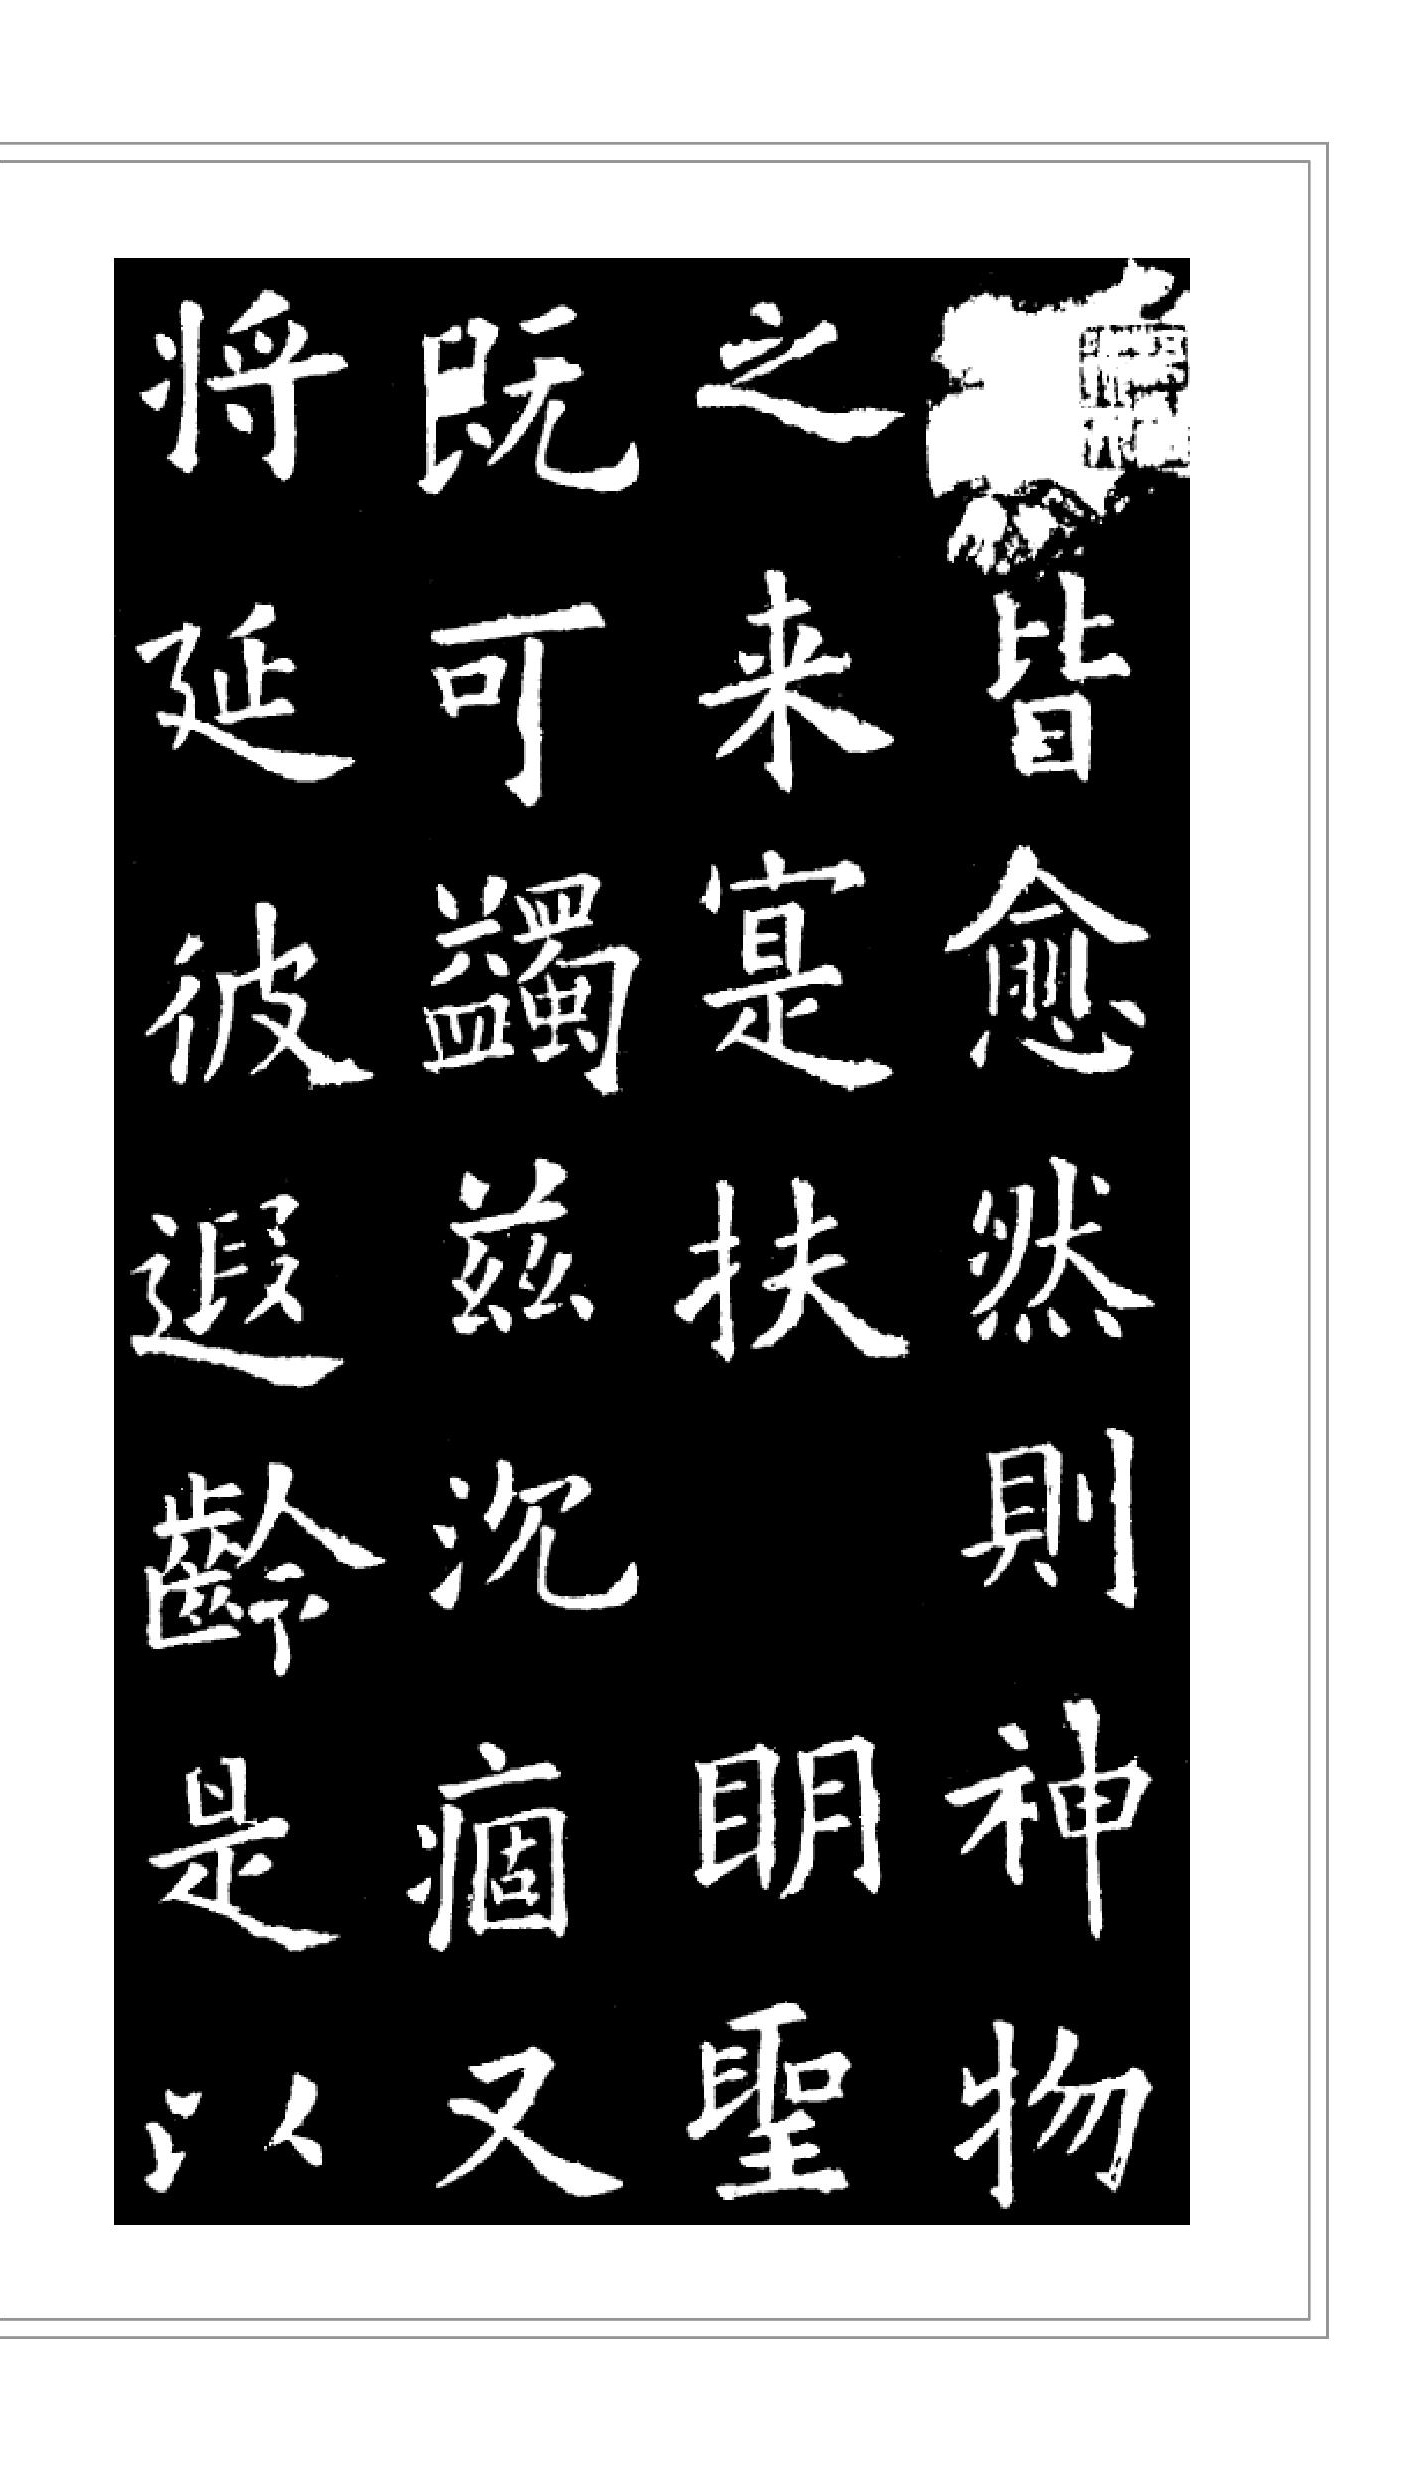 皆愈然則神物
之来寔扶眀聖
既可蠲茲沉痼又
将延彼遐齡是以